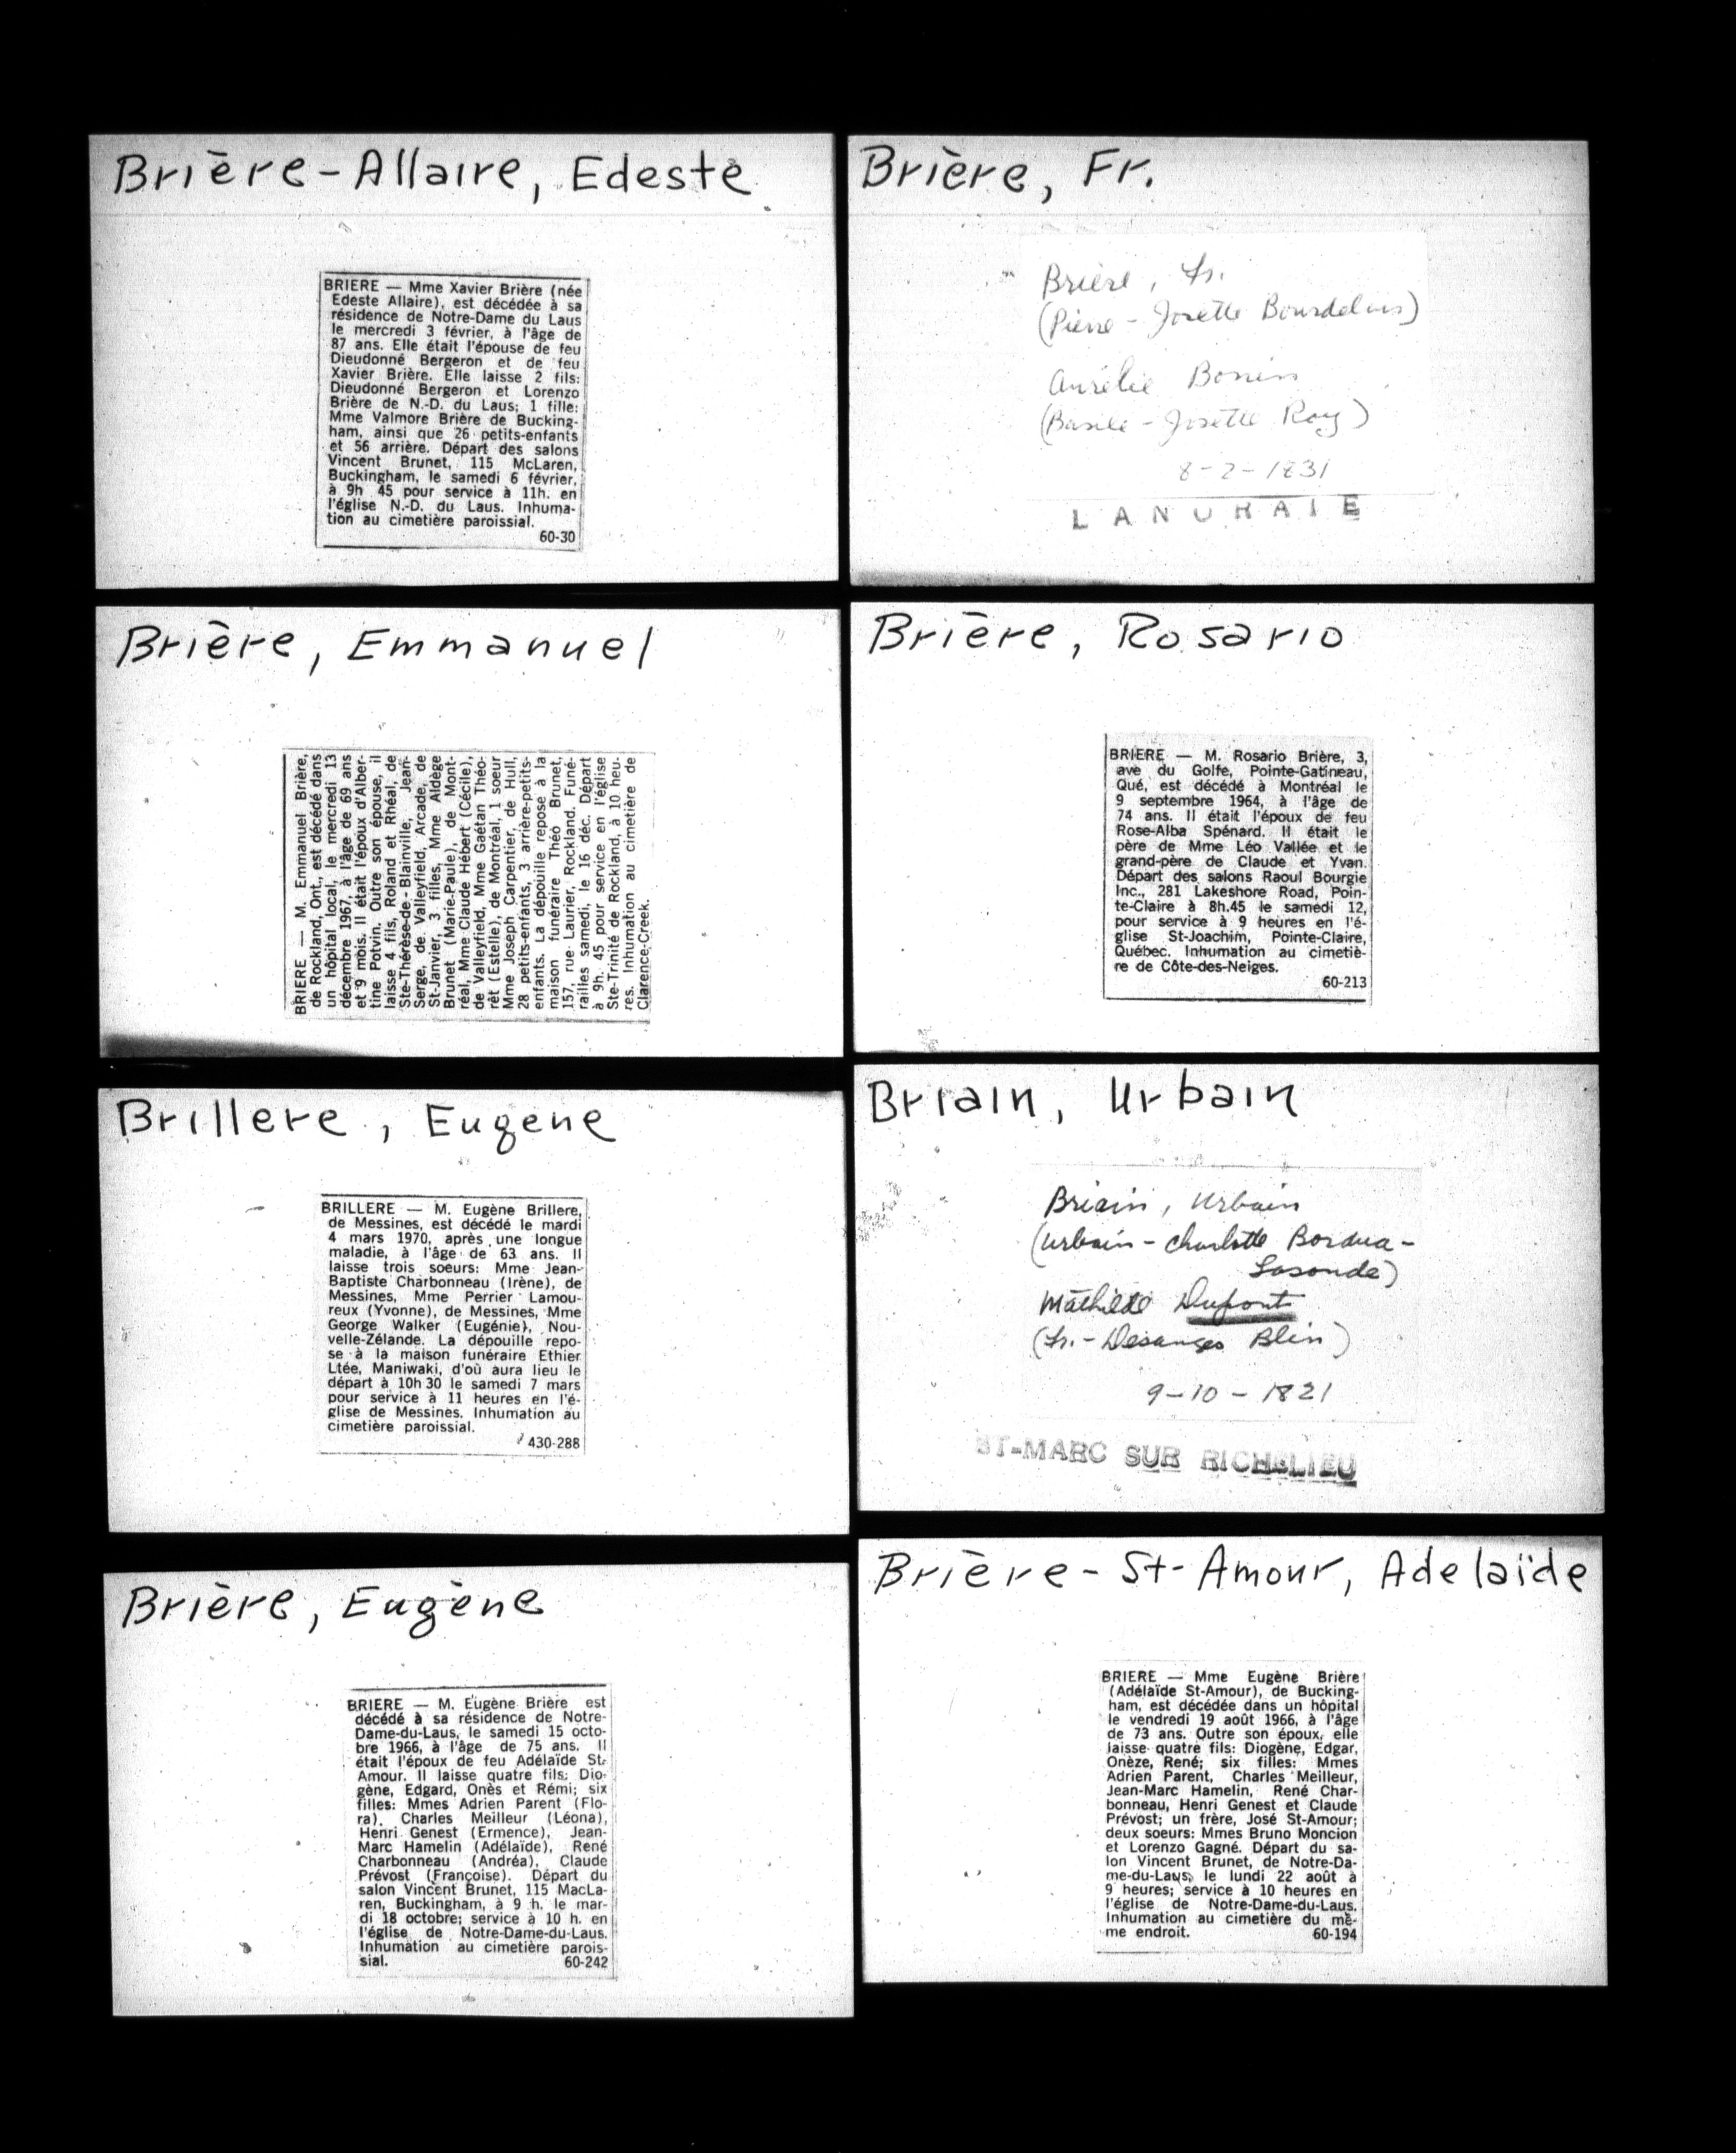 Brière-Allaire, Edeste
BRIERE — Mme Xavier Brière (née
Edeste Allaire), est décédée à sa
résidence de Notre-Dame du Laus
le mercredi 3 février, à l'âge de
87 ans. Elle était l'épouse de feu
Dieudonné Bergeron et de feu
Xavier Brière. Elle laisse 2 fils:
Dieudonné Bergeron et Lorenzo
Brière de N.-D. du Laus; 1 fille:
Mme Valmore Brière de Bucking-
ham, ainsi que 26 petits-enfants
et 56 arrière. Départ des salons
Vincent Brunet, 115 McLaren,
Buckingham, le samedi 6 février,
à 9h 45 pour service à 11h. en
l'église N.-D. du Laus. Inhuma-
tion au cimetière paroissial.
60-30
Brière, Fr.
Brière, Fr.
(Pierre - Josette Bourdelais)
Aurélie Bonin
(Basile - Josette Roy)
8-2-1831
LANORAIE
Brière, Emmanuel
BRIERE — M. Emmanuel Brière,
de Rockland, Ont., est décédé dans
un hôpital local, le mercredi 13
décembre 1967, à l'âge de 69 ans
et 9 mois. Il était l'époux d'Alber-
tine Potvin. Outre son épouse, il
laisse 4 fils, Roland et Rhéal, de
Ste-Thérèse-de-Blainville, Jean-
Serge, de Valleyfield, Arcade, de
St-Janvier, 3 filles, Mme Aldège
Brunet (Marie-Paule), de Mont-
réal, Mme Claude Hébert (Cécile),
de Valleyfield, Mme Gaétan Théo-
rêt (Estelle), de Montréal, 1 soeur
Mme Joseph Carpentier, de Hull,
28 petits-enfants, 3 arrière-petits-
enfants. La dépouille repose à la
maison funéraire Théo Brunet,
157, rue Laurier, Rockland. Funé-
railles samedi, le 16 déc. Départ
à 9h. 45 pour service en l'église
Ste-Trinité de Rockland, à 10 heu-
res. Inhumation au cimetière de
Clarence-Creek.
Brière, Rosario
BRIERE — M. Rosario Brière, 3,
ave du Golfe, Pointe-Gatineau,
Qué, est décédé à Montréal le
9 septembre 1964, à l'âge de
74 ans. Il était l'époux de feu
Rose-Alba Spénard. Il était le
père de Mme Léo Vallée et le
grand-père de Claude et Yvan.
Départ des salons Raoul Bourgie
Inc., 281 Lakeshore Road, Poin-
te-Claire à 8h.45 le samedi 12,
pour service à 9 heures en l'é-
glise St-Joachim, Pointe-Claire,
Québec. Inhumation au cimetiè-
re de Côte-des-Neiges.
60-213
Brillere, Eugene
BRILLERE — M. Eugène Brillere,
de Messines, est décédé le mardi
4 mars 1970, après une longue
maladie, à l'âge de 63 ans. Il
laisse trois soeurs: Mme Jean-
Baptiste Charbonneau (Irène), de
Messines, Mme Perrier Lamou-
reux (Yvonne), de Messines, Mme
George Walker (Eugénie), Nou-
velle-Zélande. La dépouille repo-
se à la maison funéraire Ethier
Ltée, Maniwaki, d'où aura lieu le
départ à 10h 30 le samedi 7 mars
pour service à 11 heures en l'é-
glise de Messines. Inhumation au
cimetière paroissial.
430-288
Briain, Urbain
Briain, Urbain
(Urbain - Charlotte Bordua-
Lasonde)
Mathilde Dupont
(Fr. - Desanges Blin)
9-10-1821
ST-MARC SUR RICHELIEU
Brière, Eugène
BRIERE — M. Eugène Brière est
décédé à sa résidence de Notre-
Dame-du-Laus, le samedi 15 octo-
bre 1966, à l'âge de 75 ans. Il
était l'époux de feu Adélaïde St-
Amour. Il laisse quatre fils: Dio-
gène, Edgard, Onès et Rémi; six
filles: Mmes Adrien Parent (Flo-
ra), Charles Meilleur (Léona),
Henri Genest (Ermence), Jean-
Marc Hamelin (Adélaïde), René
Charbonneau (Andréa), Claude
Prévost (Françoise). Départ du
salon Vincent Brunet, 115 MacLa-
ren, Buckingham, à 9 h. le mar-
di 18 octobre; service à 10 h. en
l'église de Notre-Dame-du-Laus.
Inhumation au cimetière parois-
sial. 60-242
Brière-St-Amour, Adelaïde
BRIERE — Mme Eugène Brière
(Adélaïde St-Amour), de Bucking-
ham, est décédée dans un hôpital
le vendredi 19 août 1966, à l'âge
de 73 ans. Outre son époux, elle
laisse quatre fils: Diogène, Edgar,
Onèze, René; six filles: Mmes
Adrien Parent, Charles Meilleur,
Jean-Marc Hamelin, René Char-
bonneau, Henri Genest et Claude
Prévost; un frère, José St-Amour;
deux soeurs: Mmes Bruno Moncion
et Lorenzo Gagné. Départ du sa-
lon Vincent Brunet, de Notre-Da-
me-du-Laus, le lundi 22 août à
9 heures; service à 10 heures en
l'église de Notre-Dame-du-Laus.
Inhumation au cimetière du mê-
me endroit. 60-194